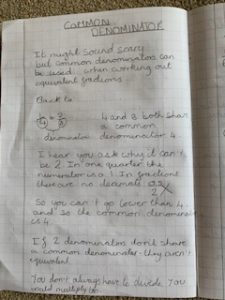 COMMON
DENOMINATOR
It might sound scary
but common denominators can
be used when working out
equivalent fractions.
Back to
4 and 8 both share
a common
denominator denominator 4.
I hear you ask why it can't
be 2. In one quarter the
numerator is a 1. In fractions
there are no decimals
So you can't go lower than 4
and so the common denominator
is 4.
If 2 denominators don't share
a common denominator they aren't
equivalent.
You don't always have to divide. You
could multiply too.